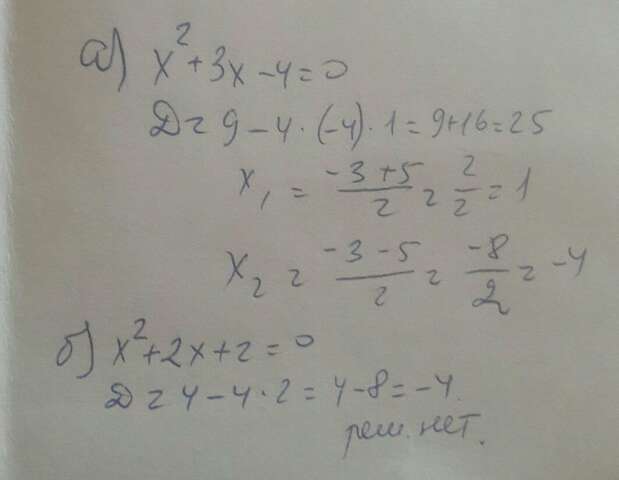 а) x²+3x-4=0
D=9-4·(-4)·1=9+16=25
x₁=\frac{-3+5}{2}=\frac{2}{2}=1
x₂=\frac{-3-5}{2}=\frac{-8}{2}=-4
б) x²+2x+2=0
D=4-4·2=4-8=-4.
реш. нет.